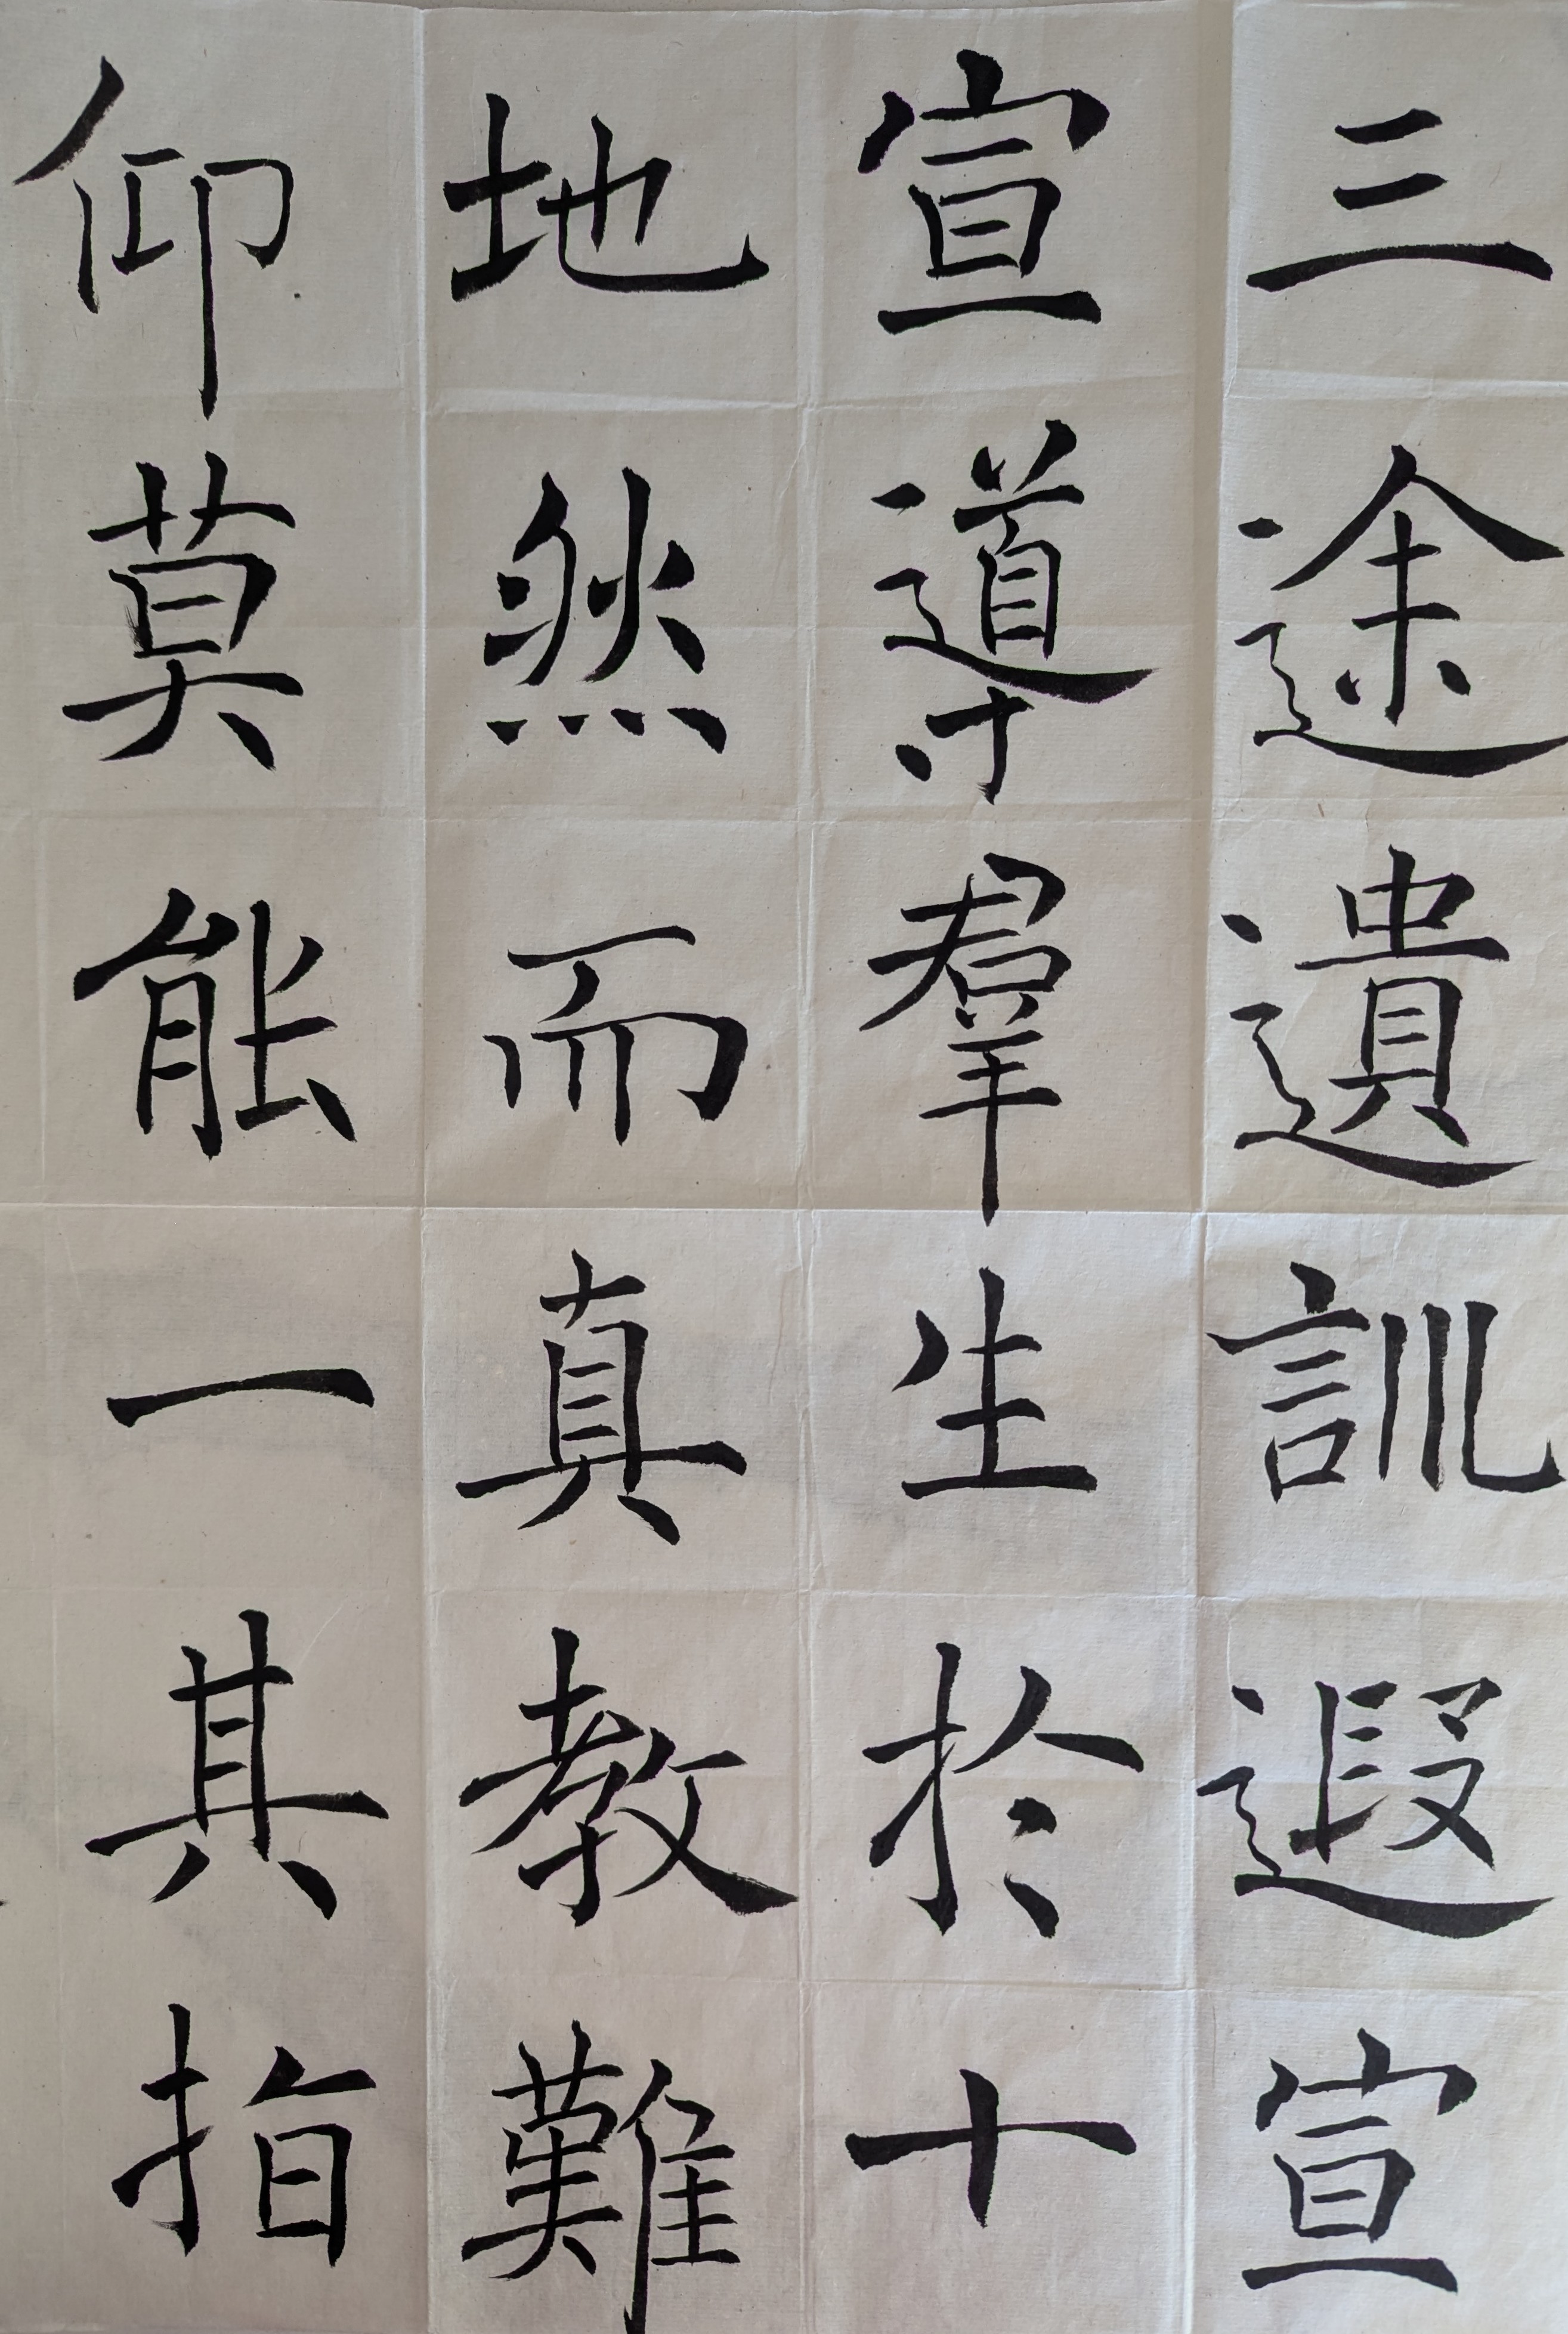 三途遺訓遐宣
宣導羣生於十
地然而真教難
仰莫能一其指